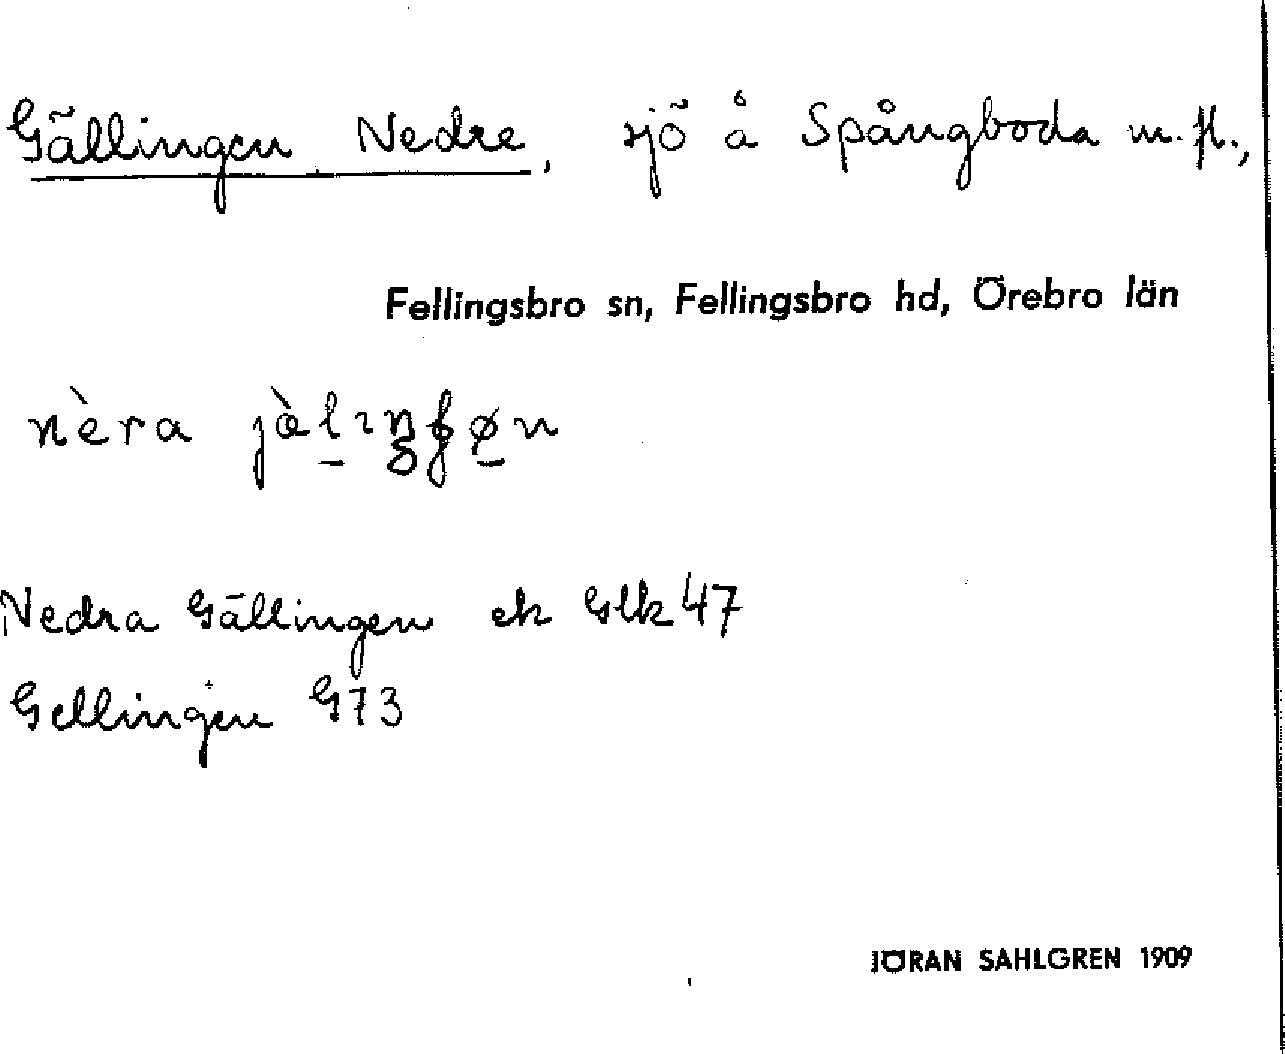 Gällingen Nedre, sjö å Spångboda m.fl.,
Fellingsbro sn, Fellingsbro hd, Örebro län
nèra
Nedra Gällingen ek Glk 47
Gellingen G73
JÖRAN SAHLGREN 1909